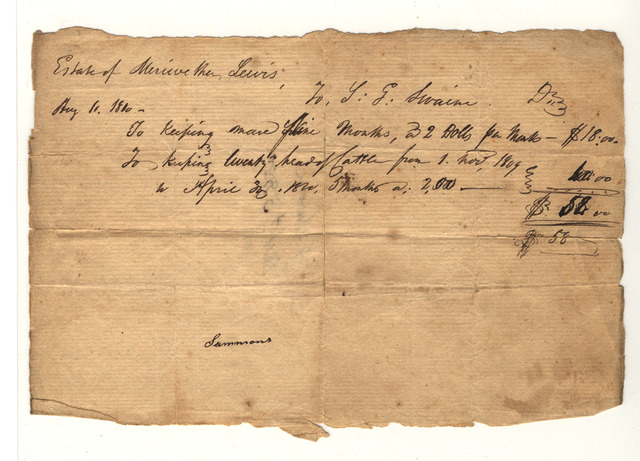 Estate of Meriwether Lewis,
To, S: P: Swaine. Dr
Aug 11. 1810 -
To Keeping mare Nine Months, @ 2 Dolls per Month - $18.00
To keeping twenty head of Cattle from 1. Novr, 1809
to April 1810. 5 Months a: 2,00 — 40.00
$ 58.00
$ 58
Sammons